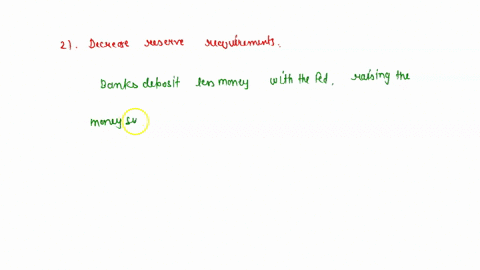 2). Decrease reserve requirements.
Banks deposit less money with the Fed, raising the
money su